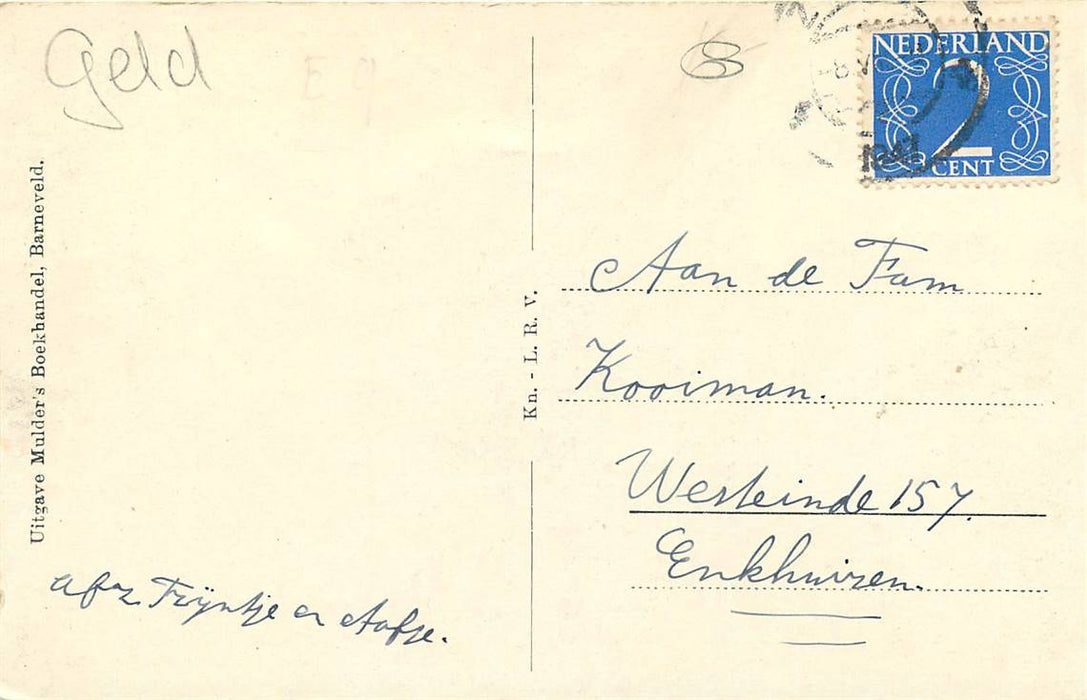 Geld
8
NEDERLAND
2
CENT
1947
Uitgave Mulder's Boekhandel, Barneveld.
Kn. - L. R. V.
Aan de Fam
Kooiman.
Westeinde 157.
Enkhuizen.
afz Trijntje en Aafje.